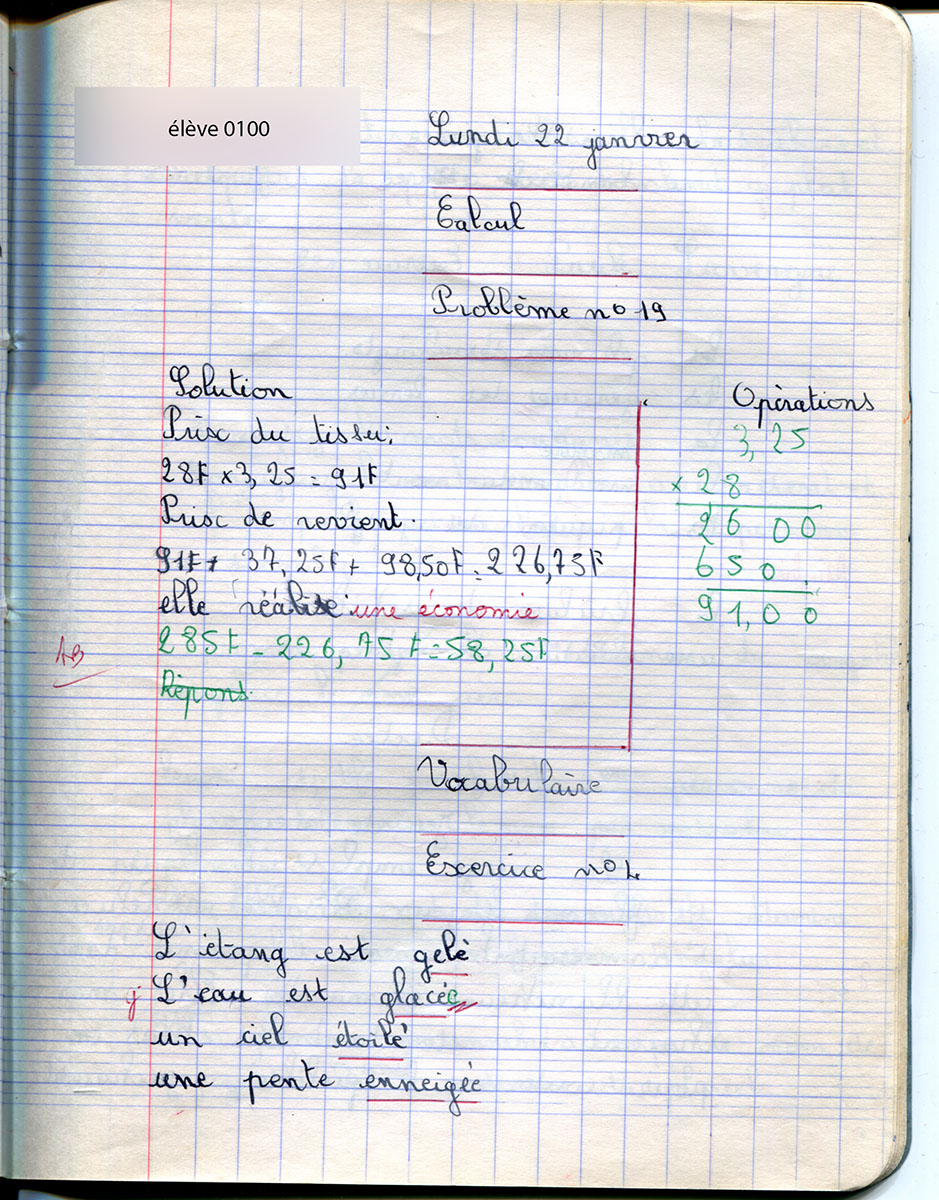 élève 0100
Lundi 22 janvier
Calcul
Problème no 19
Solution
Prix du tissu:
28F x 3,25 = 91F
Prix de revient.
91F + 37,25F + 98,50F = 226,75F
elle réalise une économie
285F - 226,75F = 58,25F
AB
Répons
Opérations
3,25
x 28
26 00
650 .
91,00
Vocabulaire
Excercice no 4
L'étang est gelé
L'eau est glacée
un ciel étoilé
une pente enneigée